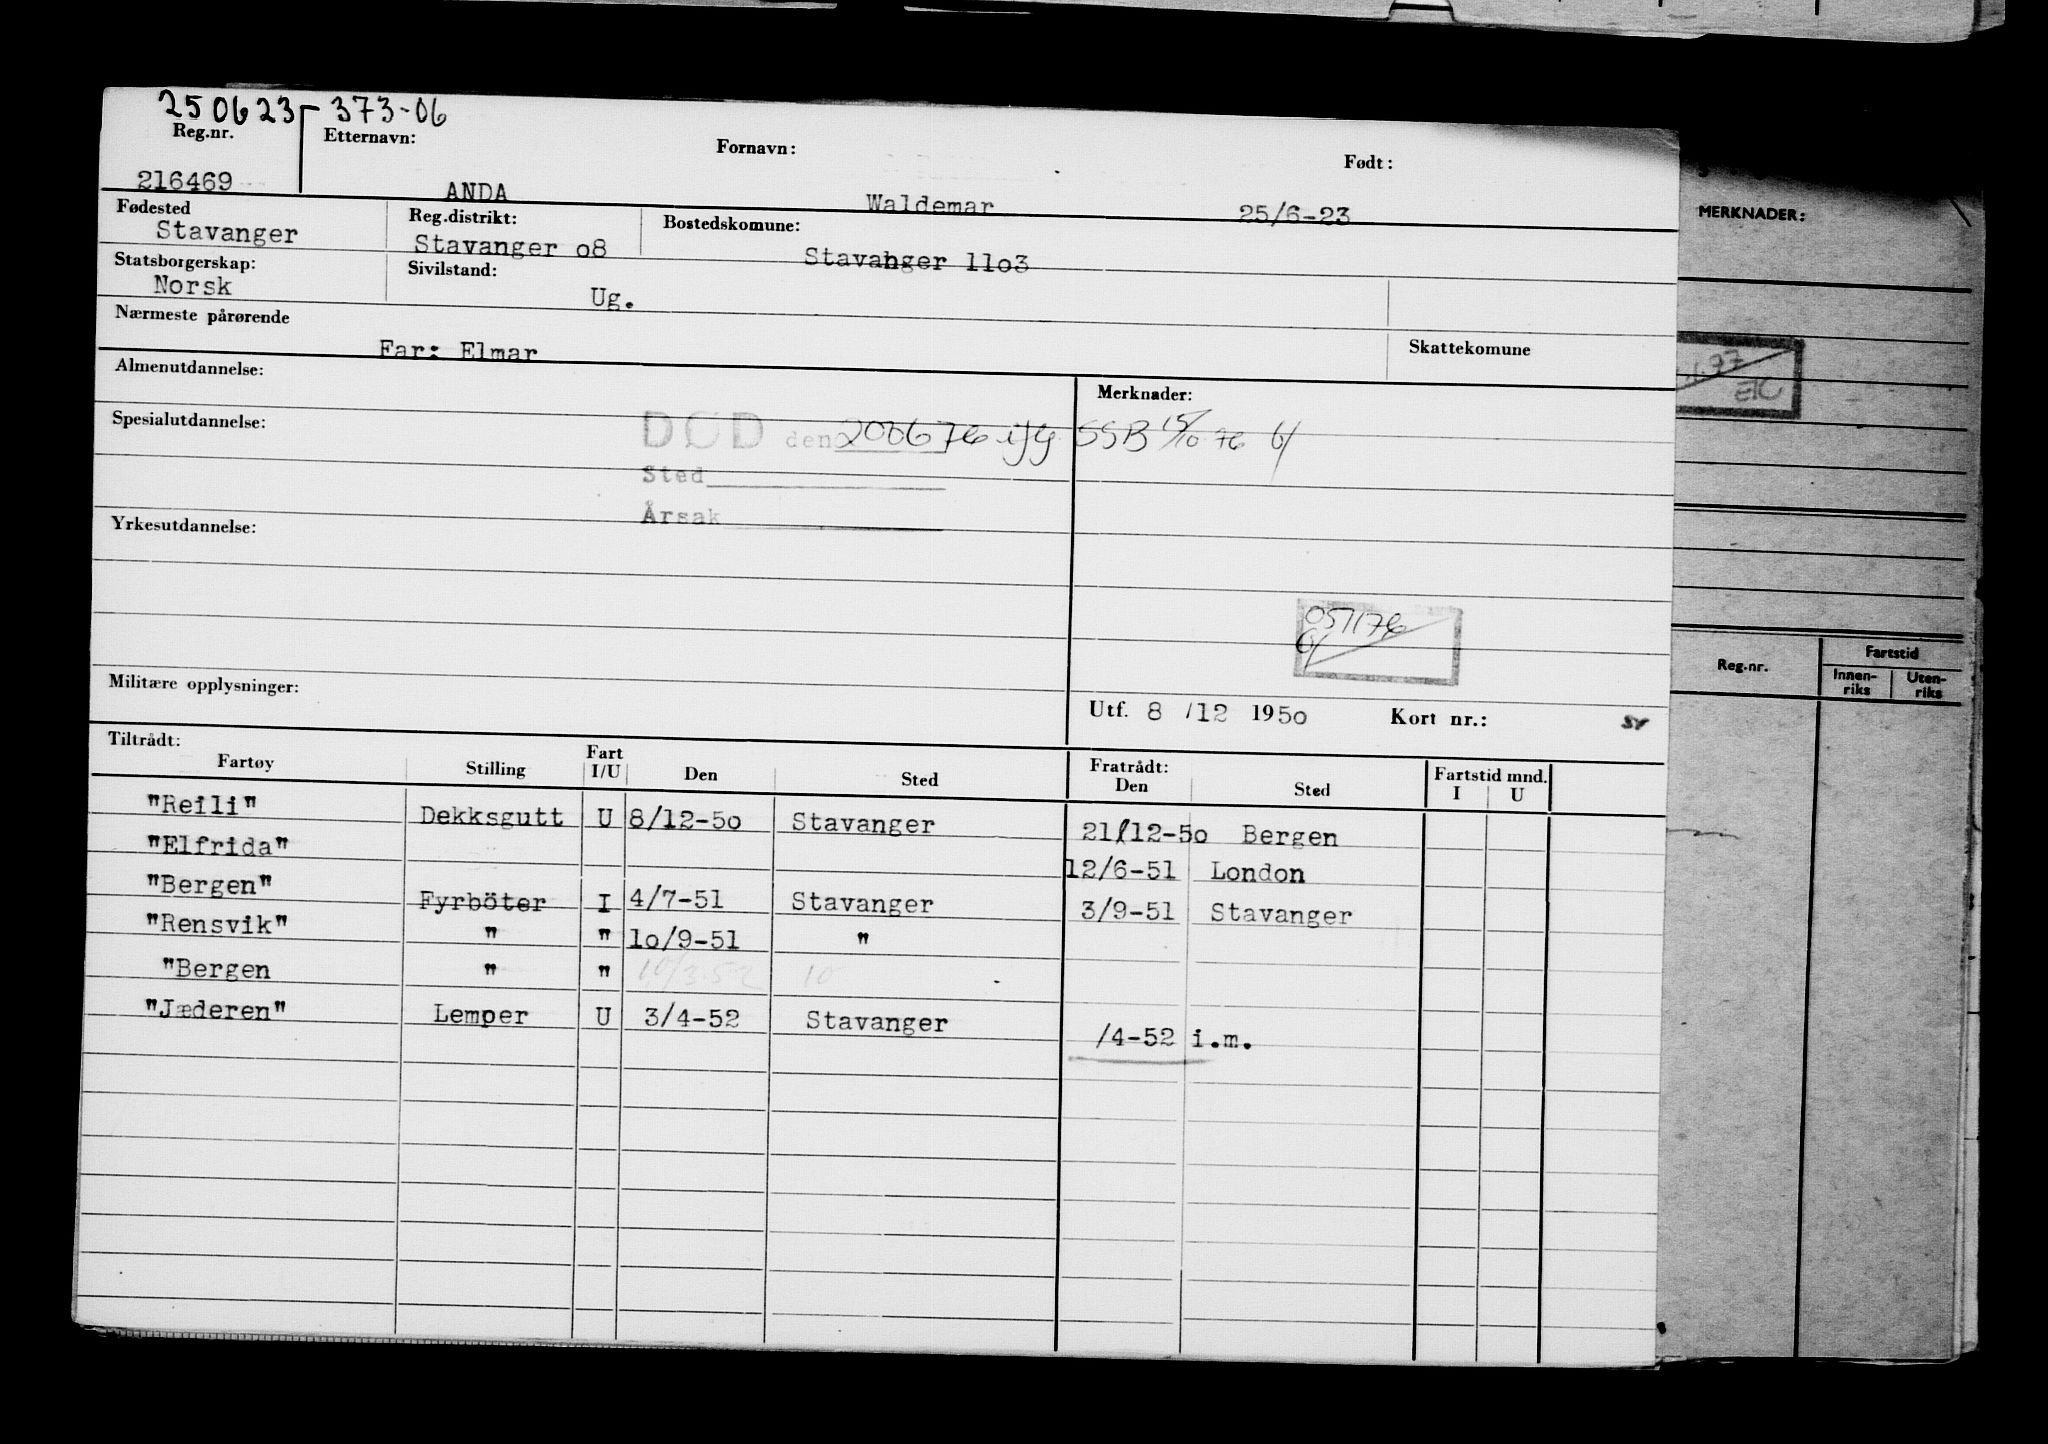 250623-373-06
Reg.nr. Etternavn: Fornavn: Født:
216469 ANDA Waldemar 25/6-23
Fødested Reg.distrikt: Bostedskomune:
Stavanger Stavanger o8 Stavanger 11o3
Statsborgerskap: Sivilstand:
Norsk Ug.
Nærmeste pårørende Skattekomune
Far: Elmar
Almenutdannelse: Merknader:
Spesialutdannelse: DØD den 200676 ifg SSB 15/10 76
Sted
Årsak
Yrkesutdannelse:
051176
Militære opplysninger:
Utf. 8 /12 195o Kort nr.:
Tiltrådt: Fratrådt:
Fartøy Stilling Fart I/U Den Sted Den Sted Fartstid mnd. I U
"Reili" Dekksgutt U 8/12-5o Stavanger 21/12-5o Bergen
"Elfrida" 12/6-51 London
"Bergen" Fyrböter I 4/7-51 Stavanger 3/9-51 Stavanger
"Rensvik" " " 1o/9-51 "
"Bergen " " 10/3.52 10
"Jæderen" Lemper U 3/4-52 Stavanger /4-52 i.m.
MERKNADER:
77
Reg.nr. Fartstid
Innen-riks Uten-riks